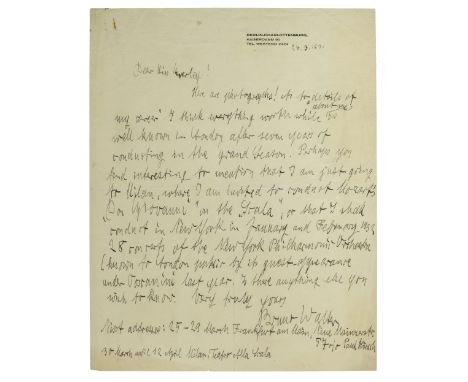 BERLIN-CHARLOTTENBURG,
KAISERDAMM
TEL. WESTEND
Dear Miss
Here are photographs! As to details of
my career I think everything worth while is
about me
well known in London after seven years of
conducting in the Grand Season. Perhaps you
find interesting to mention that I am just going
to Milan, where I am invited to conduct Mozart's
"Don Giovanni" on the "Scala", or that I shall
conduct in New York in January and February 1932
28 concerts of the New York Philharmonic Orchestra
(known to London public by its guest-appearance
under Toscanini last year. Is there anything else you
wish to know.
Very truly yours
Bruno Walter
Next addresses: 25-29 March Frankfurt am Main,
30 March until 12 April Milan, Teatro Alla Scala